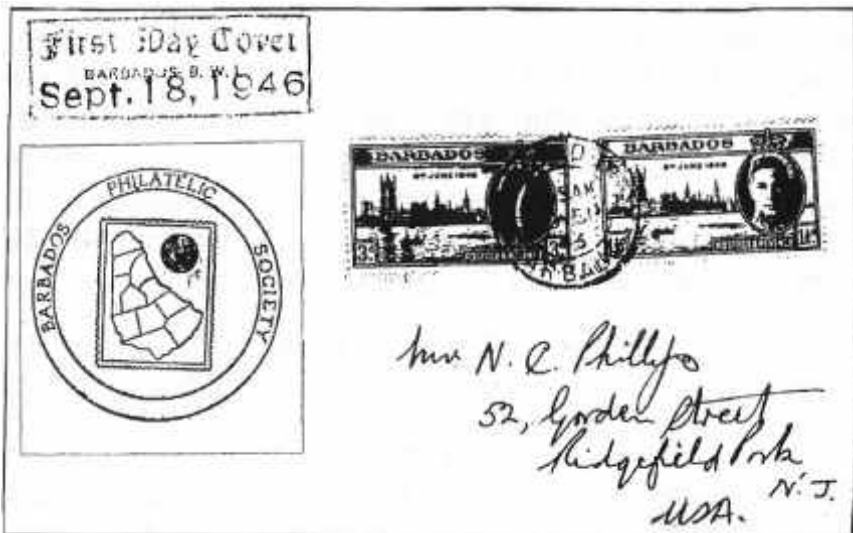 First Day Cover
BARBADOS B. W. I.
Sept. 18, 1946
BARBADOS PHILATELIC SOCIETY
BARBADOS
8TH JUNE 1946
BARBADOS
8TH JUNE 1946
N. C. Phillips
52, Gorden Street
Ridgefield Park
N. J.
USA.